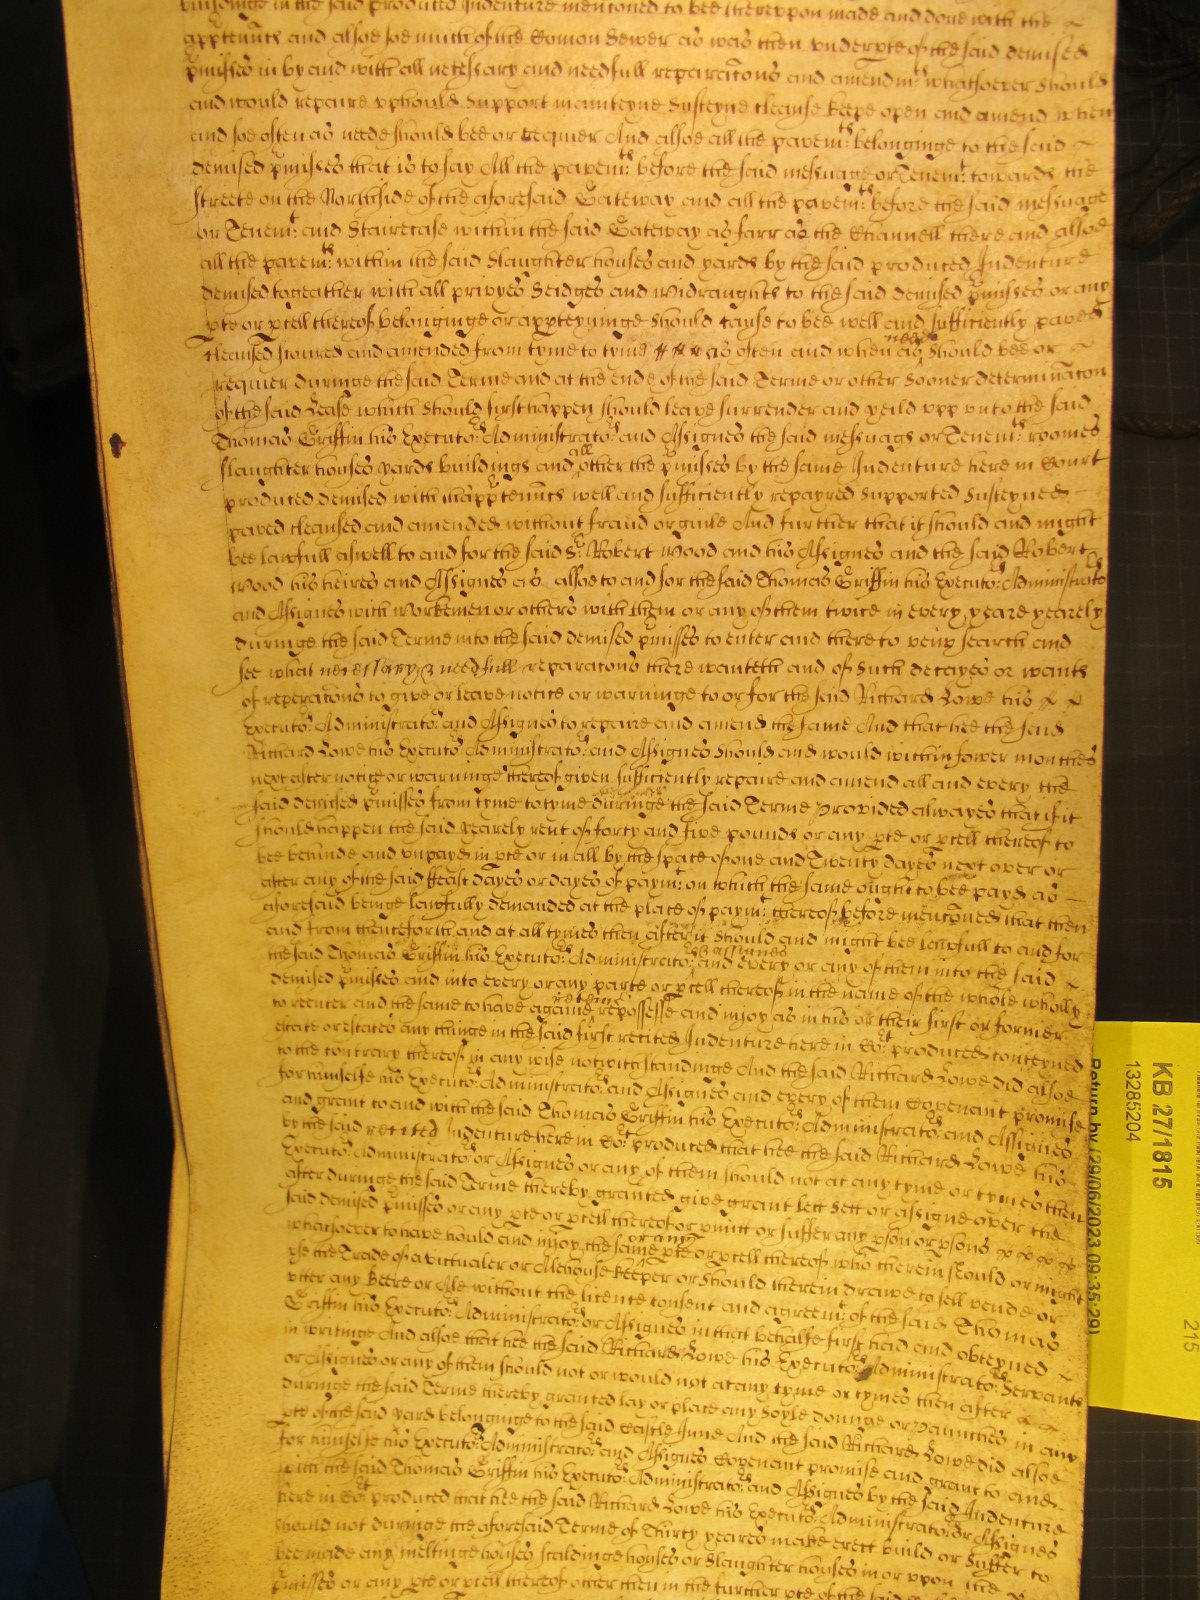 belonginge in the said produced Indenture mentioned to bee thereuppon made and done with the
apptennts and alsoe soe much of the Comon Sewer as was then under pte of the said demised
pmisses in by and with all necessary and needfull reparacons and amendmts whatsoever should
and would repaire uphould Support mainteyne Susteyne cleanse keepe open and amend when
and soe often as neede should bee or requier And alsoe all the pavemts belonginge to the said
demised pmisses that is to say All the pavemts before the said messuage or Tenemt towards the
streete on the Northside of the aforesaid Gateway and all the pavemts before the said messuage
or Tenemt and Stairecase within the said Gateway as farr as the Channell there and alsoe
all the pavemts within the said Slaughter houses and yards by the said produced Indenture
demised togeather with all privyes Seidges and Widraughts to the said demised pmisses or any
pte or pcell thereof belonginge or appteyninge should cause to bee well and sufficiently paved
cleansed scoured and amended from tyme to tyme as often and when as neede should bee or
requier duringe the said Terme and at the ende of the said Terme or other Sooner determinacon
of the said Lease which should first happen should leave surrender and yeild upp unto the said
Thomas Griffin his Executors Administrators and Assignes the said messuags or Tenemts roomes
slaughter houses yards buildings and all other the pmisses by the same Indenture here in Court
produced demised with thapptennts well and sufficiently repayred supported susteyned
paved cleansed and amended without fraud or guile And further that it should and might
bee lawfull aswell to and for the said Sr Robert Wood and his Assignes and the said Robert
Wood his heires and Assignes as alsoe to and for the said Thomas Griffin his Executors Administrators
and Assignes with Workemen or others with them or any of them twice in every yeare yearely
duringe the said Terme into the said demised pmisses to enter and there to veiw search and
see what necessary & needfull reparacons there wanteth and of such decayes or wants
of reperacons to give or leave notice or warninge to or for the said Richard Lowe his
Executors Administrators and Assignes to repaire and amend the same And that hee the said
Richard Lowe his Executors Administrators and Assignes should and would within fower monthes
next after notice or warninge thereof given sufficiently repaire and amend all and every the
said demised pmisses from tyme to tyme duringe the said Terme Provided alwayes that if it
should happen the said yearely rent of forty and five pounds or any pte or pcell thereof to
bee behinde and unpayd in pte or in all by the space of one and Twenty dayes next over or
after any of the said ffeast dayes or dayes of paymt on which the same ought to bee payd as
aforesaid beinge lawfully demanded at the place of paymt thereof before mencioned that then
and from thenceforth and at all tymes then after it should and might bee lawfull to and for
the said Thomas Griffin his Executors Administrators & assignes and every or any of them into the said
demised pmisses and into every or any parte or pcell thereof in the name of the whole wholly
to reenter and the same to have againe reteine repossesse and injoy as in his or their first or former
estate or estates any thinge in the said first recited Indenture here in Cort produced conteyned
to the contrary thereof in any wise notwithstandinge And the said Richard Lowe did alsoe
for himselfe his Executors Administrators and Assignes and every of them Covenant promise
and grant to and with the said Thomas Griffin his Executors Administrators and Assignes
by the said recited Indenture here in Cort produced that hee the said Richard Lowe his
Executors Administrators or Assignes or any of them should not at any tyme or tymes then
after duringe the said Terme thereby granted give grant lett sett or assigne over the
said demised pmisses or any pte or pcell thereof or pmitt or suffer any pson or psons
whatsoever to have hould and injoy the same or any pte or pcell thereof who therein should or might
use the Trade of a victualer or Alehouse keeper or should therein drawe to sell vende or
utter any Beere or Ale without the licence consent and agreemt of the said Thomas
Griffin his Executors Administrators or Assignes in that behalfe first had and obteyned
in writinge And alsoe that hee the said Richard Lowe his Executors Administrators Servants
or Assignes or any of them should not or would not at any tyme or tymes then after
duringe the said Terme thereby granted lay or place any Soyle dounge or paunches in any
pte of the said yard belonginge to the said Castle Inne And the said Richard Lowe did alsoe
for himselfe his Executors Administrators and Assignes Covenant promise and grant to and
with the said Thomas Griffin his Executors Administrators and Assignes by the said Indenture
here in Cort produced that hee the said Richard Lowe his Executors Administrators or Assignes
should not duringe the aforesaid Terme of Thirty yeares make erect build or suffer to
bee made any meltinge houses scaldinge houses or Slaughter houses in or upon the
pmisses or any pte or pcell thereof other then in the further pte of the said
KB 27/1815
13285204
Return by (29/06/2023 09:35:29)
215